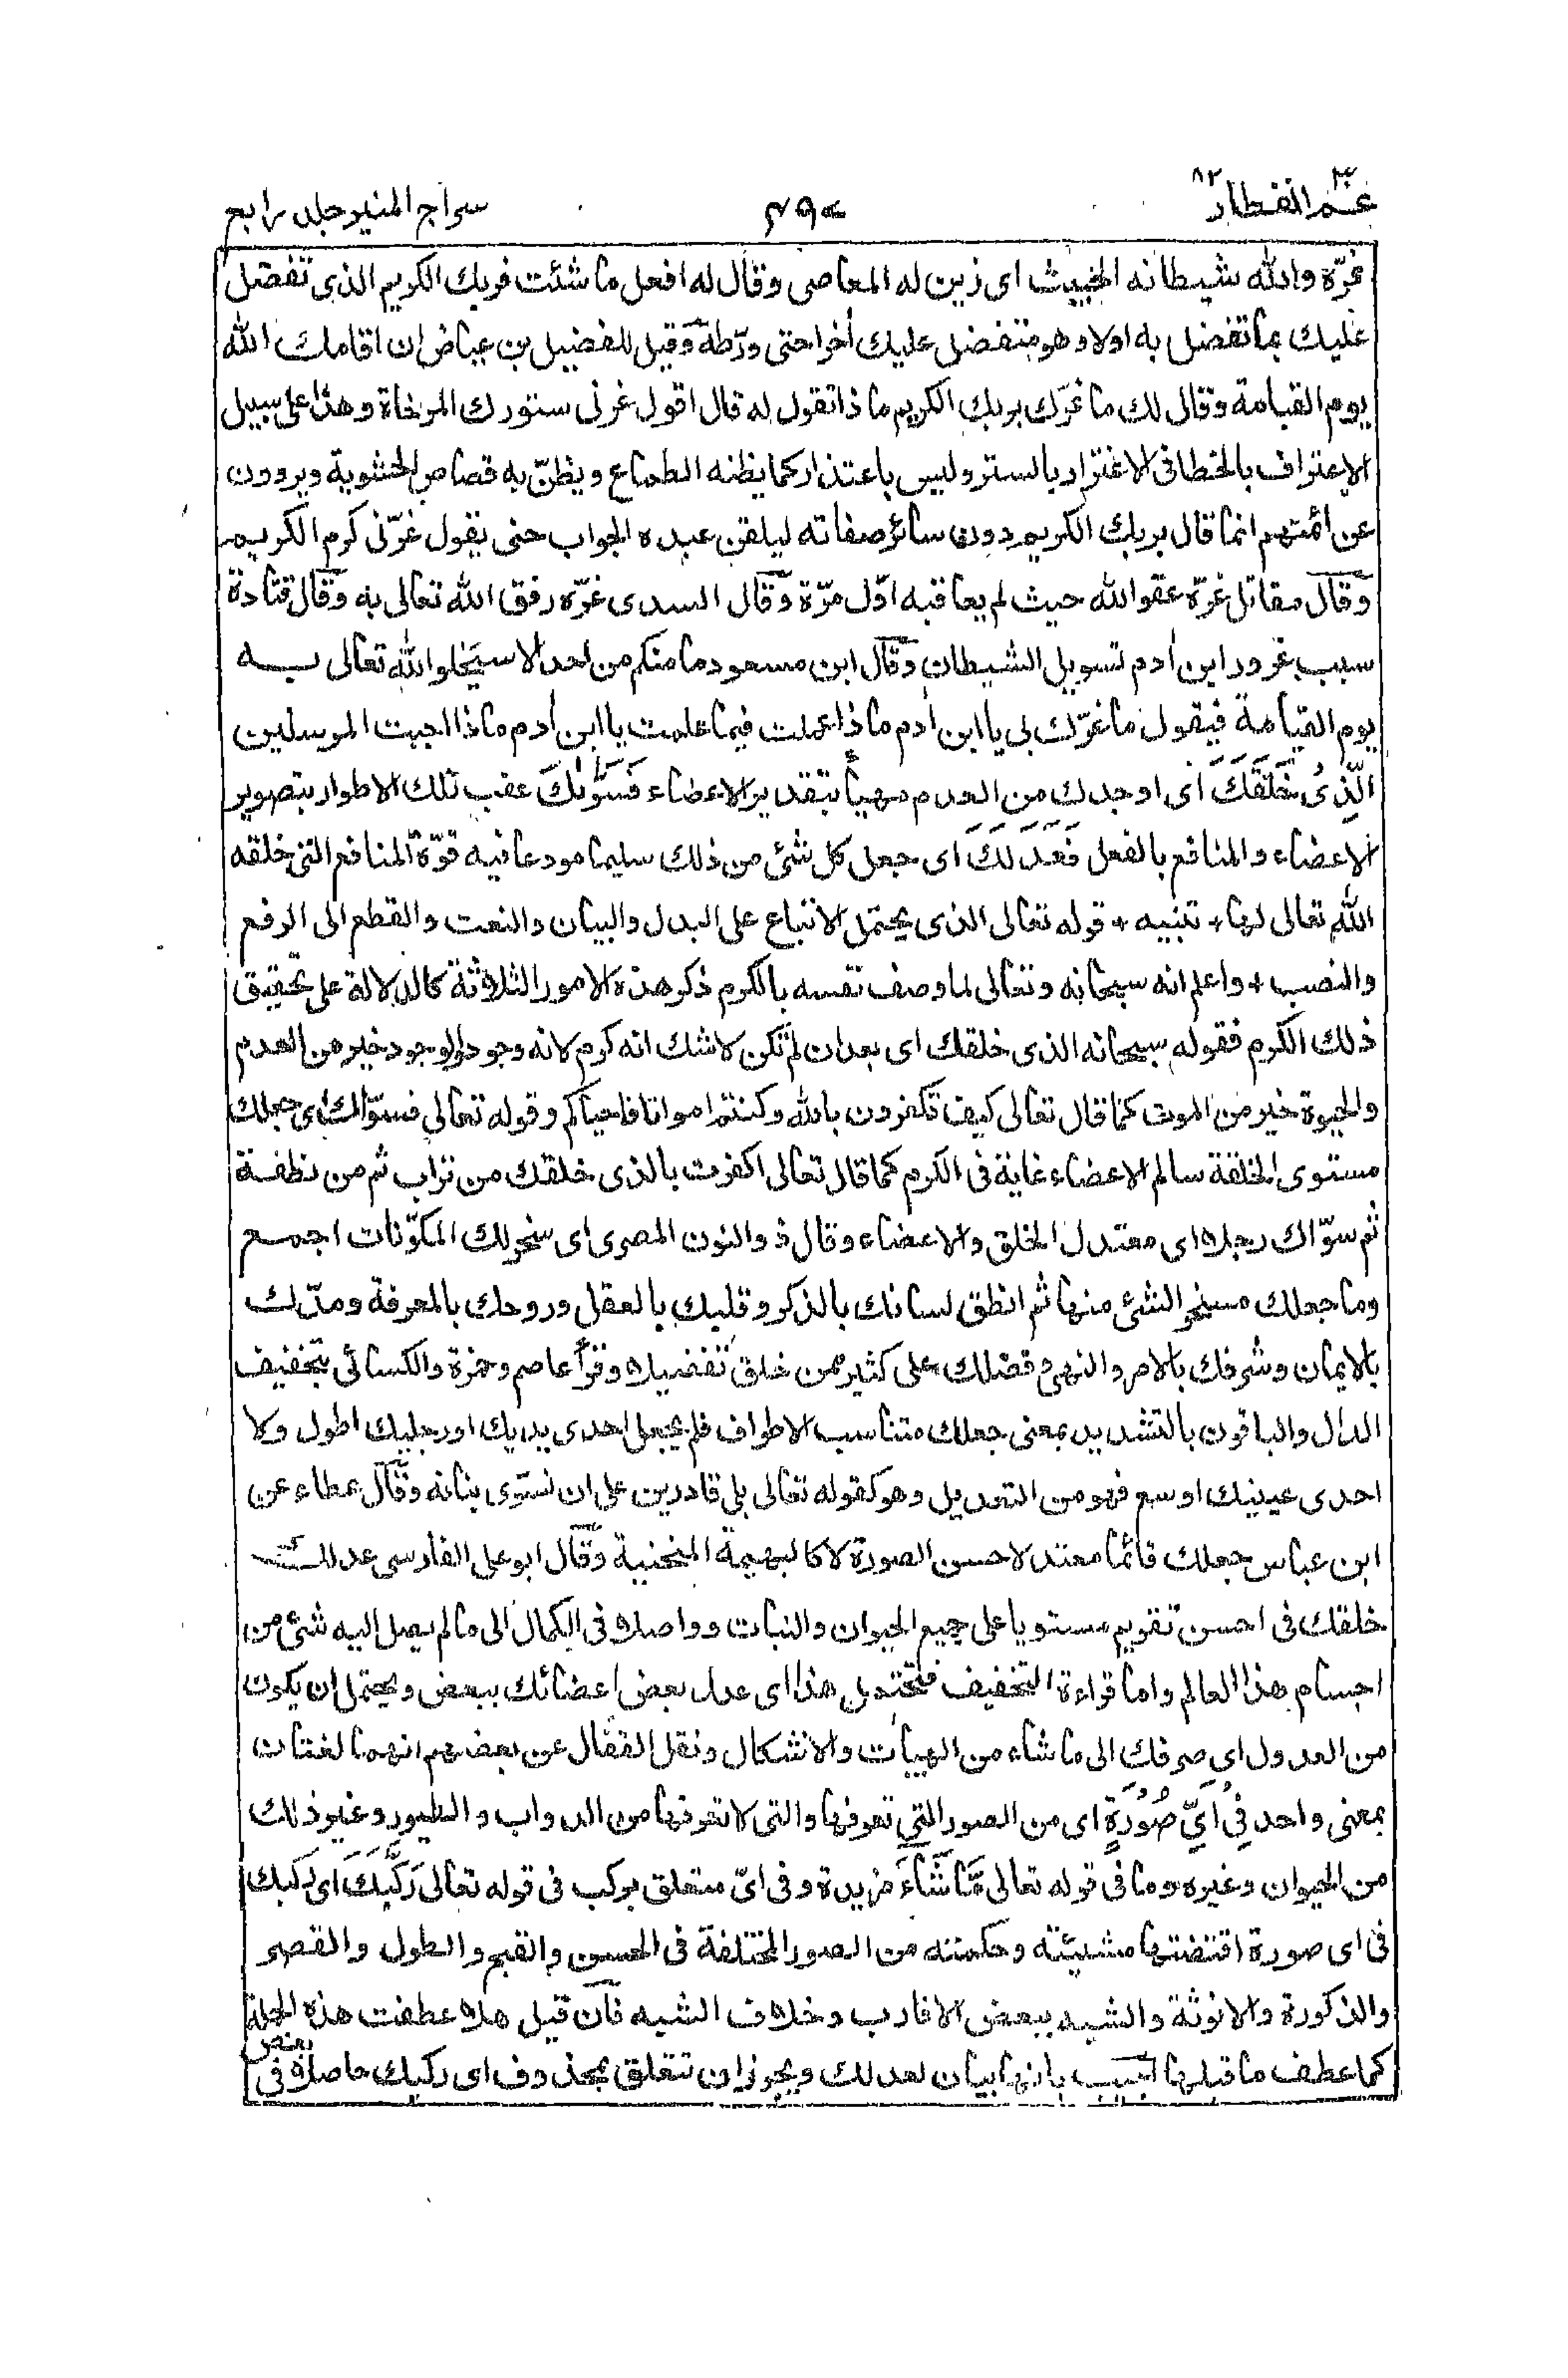 عــم ٣٠ انفطار ٨٢
سراج المنير جلد رابع
غرّه والله شيطانه الخبيث اى زين له المعاصى وقال له افعل ما شئت فربك الكريم الذى تفضل
عليك بما تفضل به اولا وهو متفضل عليك أخرا حتى ورّطه وقيل للفضيل بن عياض ان اقامك الله
يوم القيامة وقال لك ما غرّك بربك الكريم ماذا تقول له قال اقول غرنى ستورك المرخاة وهذا على سبيل
الاعتراف بالخطا فى الاغترار بالستر وليس باعتذار كما يظنه الطماع ويظنّ به قصاص الحشوية ويروون
عن ائمتهم انما قال بربك الكريم دون سائر صفاته ليلقن عبده الجواب حتى يقول غرّنى كرم الكريم
وقال مقاتل غرّه عفو الله حيث لم يعاقبه اوّل مرّة وقال السدى غرّه رفق الله تعالى به وقال قتادة
سبب غرور ابن أدم تسويل الشيطان وقال ابن مسعود ما منكم من احد الا سيخلو الله تعالى به
يوم القيامة فيقول ما غرّك بى يا ابن أدم ماذا عملت فيما علمت يا ابن أدم ماذا اجبت المرسلين
الَّذِىْ خَلَقَكَ اى اوجدك من العدم مهيأ بتقدير الاعضاء فَسَوّٰىكَ عقب تلك الاطوار بتصوير
الاعضاء والمنافع بالفعل فَعَدَلَكَ اى جعل كل شئ من ذلك سليما مودعا فيه قوّة المنافع التى خلقه
الله تعالى لها + تنبيه + قوله تعالى الذى يحتمل الاتباع على البدل والبيان والنعت والقطع الى الرفع
والنصب + واعلم انه سبحانه وتعالى لما وصف نفسه بالكرم ذكر هذه الامور الثلاثة كالدلالة على تحقيق
ذلك الكرم فقوله سبحانه الذى خلقك اى بعد ان لم تكن لا شك انه كرم لانه وجود والوجود خير من العدم
والحيوة خير من الموت كما قال تعالى كيف تكفرون بالله وكنتم امواتا فاحياكم وقوله تعالى فسوّاك اى جعلك
مستوى الخلقة سالم الاعضاء غاية فى الكرم كما قال تعالى اكفرت بالذى خلقك من تراب ثم من نطفة
ثم سوّاك رجلا اى معتدل الخلق والاعضاء وقال ذو النون المصرى اى سخر لك المكوّنات اجمع
وما جعلك مسخر الشئ منها ثم انطق لسانك بالذكر وقلبك بالعقل وروحك بالمعرفة ومدّك
بالايمان وشرفك بالامر والنهى وفضلك على كثير ممن خلق تفضيلا وقرأ عاصم وحمزة والكسائى بتخفيف
الدال والباقون بالتشديد بمعنى جعلك متناسب الاطراف فلم يجعل احدى يديك او رجليك اطول ولا
احدى عينيك اوسع فهو من التعديل وهو كقوله تعالى بلى قادرين على ان نسوّى بنانه وقال عطاء عن
ابن عباس جعلك قائما معتدلا حسن الصورة لا كالبهيمة المنحنية وقال ابو على الفارسى عدلك
خلقك فى احسن تقويم مستويا على جميع الحيوان والنبات وواصلا فى الكمال الى ما لم يصل اليه شئ من
اجسام هذا العالم واما قراءة التخفيف فتحتمل هذا اى عدل بعض اعضائك ببعض ويحتمل ان يكون
من العدول اى صرفك الى ما شاء من الهيأت والاشكال ونقل القفال عن بعضهم انهما لغتان
بمعنى واحد فِىْ اَىِّ صُوْرَةٍ اى من الصور التى تعرفها والتى لا تعرفها من الدواب والطيور وغير ذلك
من الحيوان وغيره وما فى قوله تعالى مَّا شَآءَ مزيدة وفى اىّ متعلق بركب فى قوله تعالى رَكَّبَكَ اى ركبك
فى اى صورة اقتضتها مشيئته وحكمته من الصور المختلفة فى الحسن والقبح والطول والقصر
والذكورة والانوثة والشبه ببعض الاقارب وخلاف الشبه فان قيل هلا عطفت هذه الجملة
كما عطف ما قبلها اجيب بانها بيان لعدلك ويجوز ان تتعلق بمحذوف اى ركبك حاصلا فى بعض